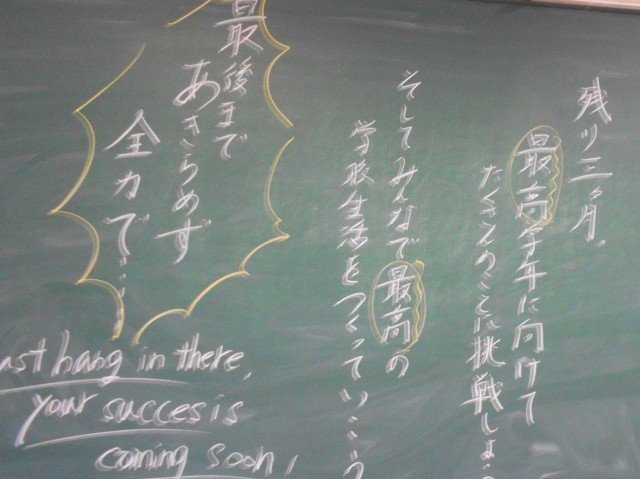 残り三ヶ月。
最高学年に向けて
たくさんのことに挑戦しよう
そしてみんなで最高の
学校生活をつくっていこう
最後まで
あきらめず
全力で…
ast hang in there,
your succes is
coming soon,